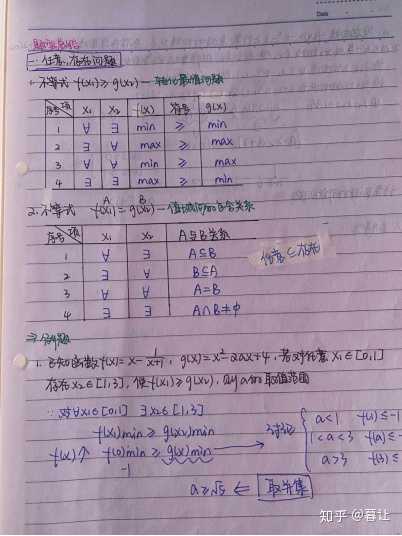 一、任意、存在问题
1. 不等式 f(x₁)≥g(x₂)—转化最值问题
序号 项 x₁ x₂ f(x) 符号 g(x)
1 ∀ ∃ min ≥ min
2 ∃ ∀ max ≥ max
3 ∀ ∀ min ≥ max
4 ∃ ∃ max ≥ min
A B
2. 不等式 f(x₁)=g(x₂)—值域间的包含关系
序号 项 x₁ x₂ A与B关系
1 ∀ ∃ A⊆B
2 ∃ ∀ B⊆A
3 ∀ ∀ A=B
4 ∃ ∃ A∩B≠φ
任意⊆存在
⇒例题
1. 已知函数f(x)=x-1/(x+1), g(x)=x²-2ax+4, 若对任意 x₁∈[0,1]
存在x₂∈[1,3], 使f(x₁)≥g(x₂), 则a的取值范围
∵对∀x₁∈[0,1] ∃x₂∈[1,3]
f(x₁)min≥g(x₂)min
f(x)↑ f(0)min≥g(x)min
-1
讨论
a<1 f(1)≤-1
1<a<3 f(a)≤-
a>3 f(3)≤
a≥√5 ⇐ 取并集
知乎 @暮让